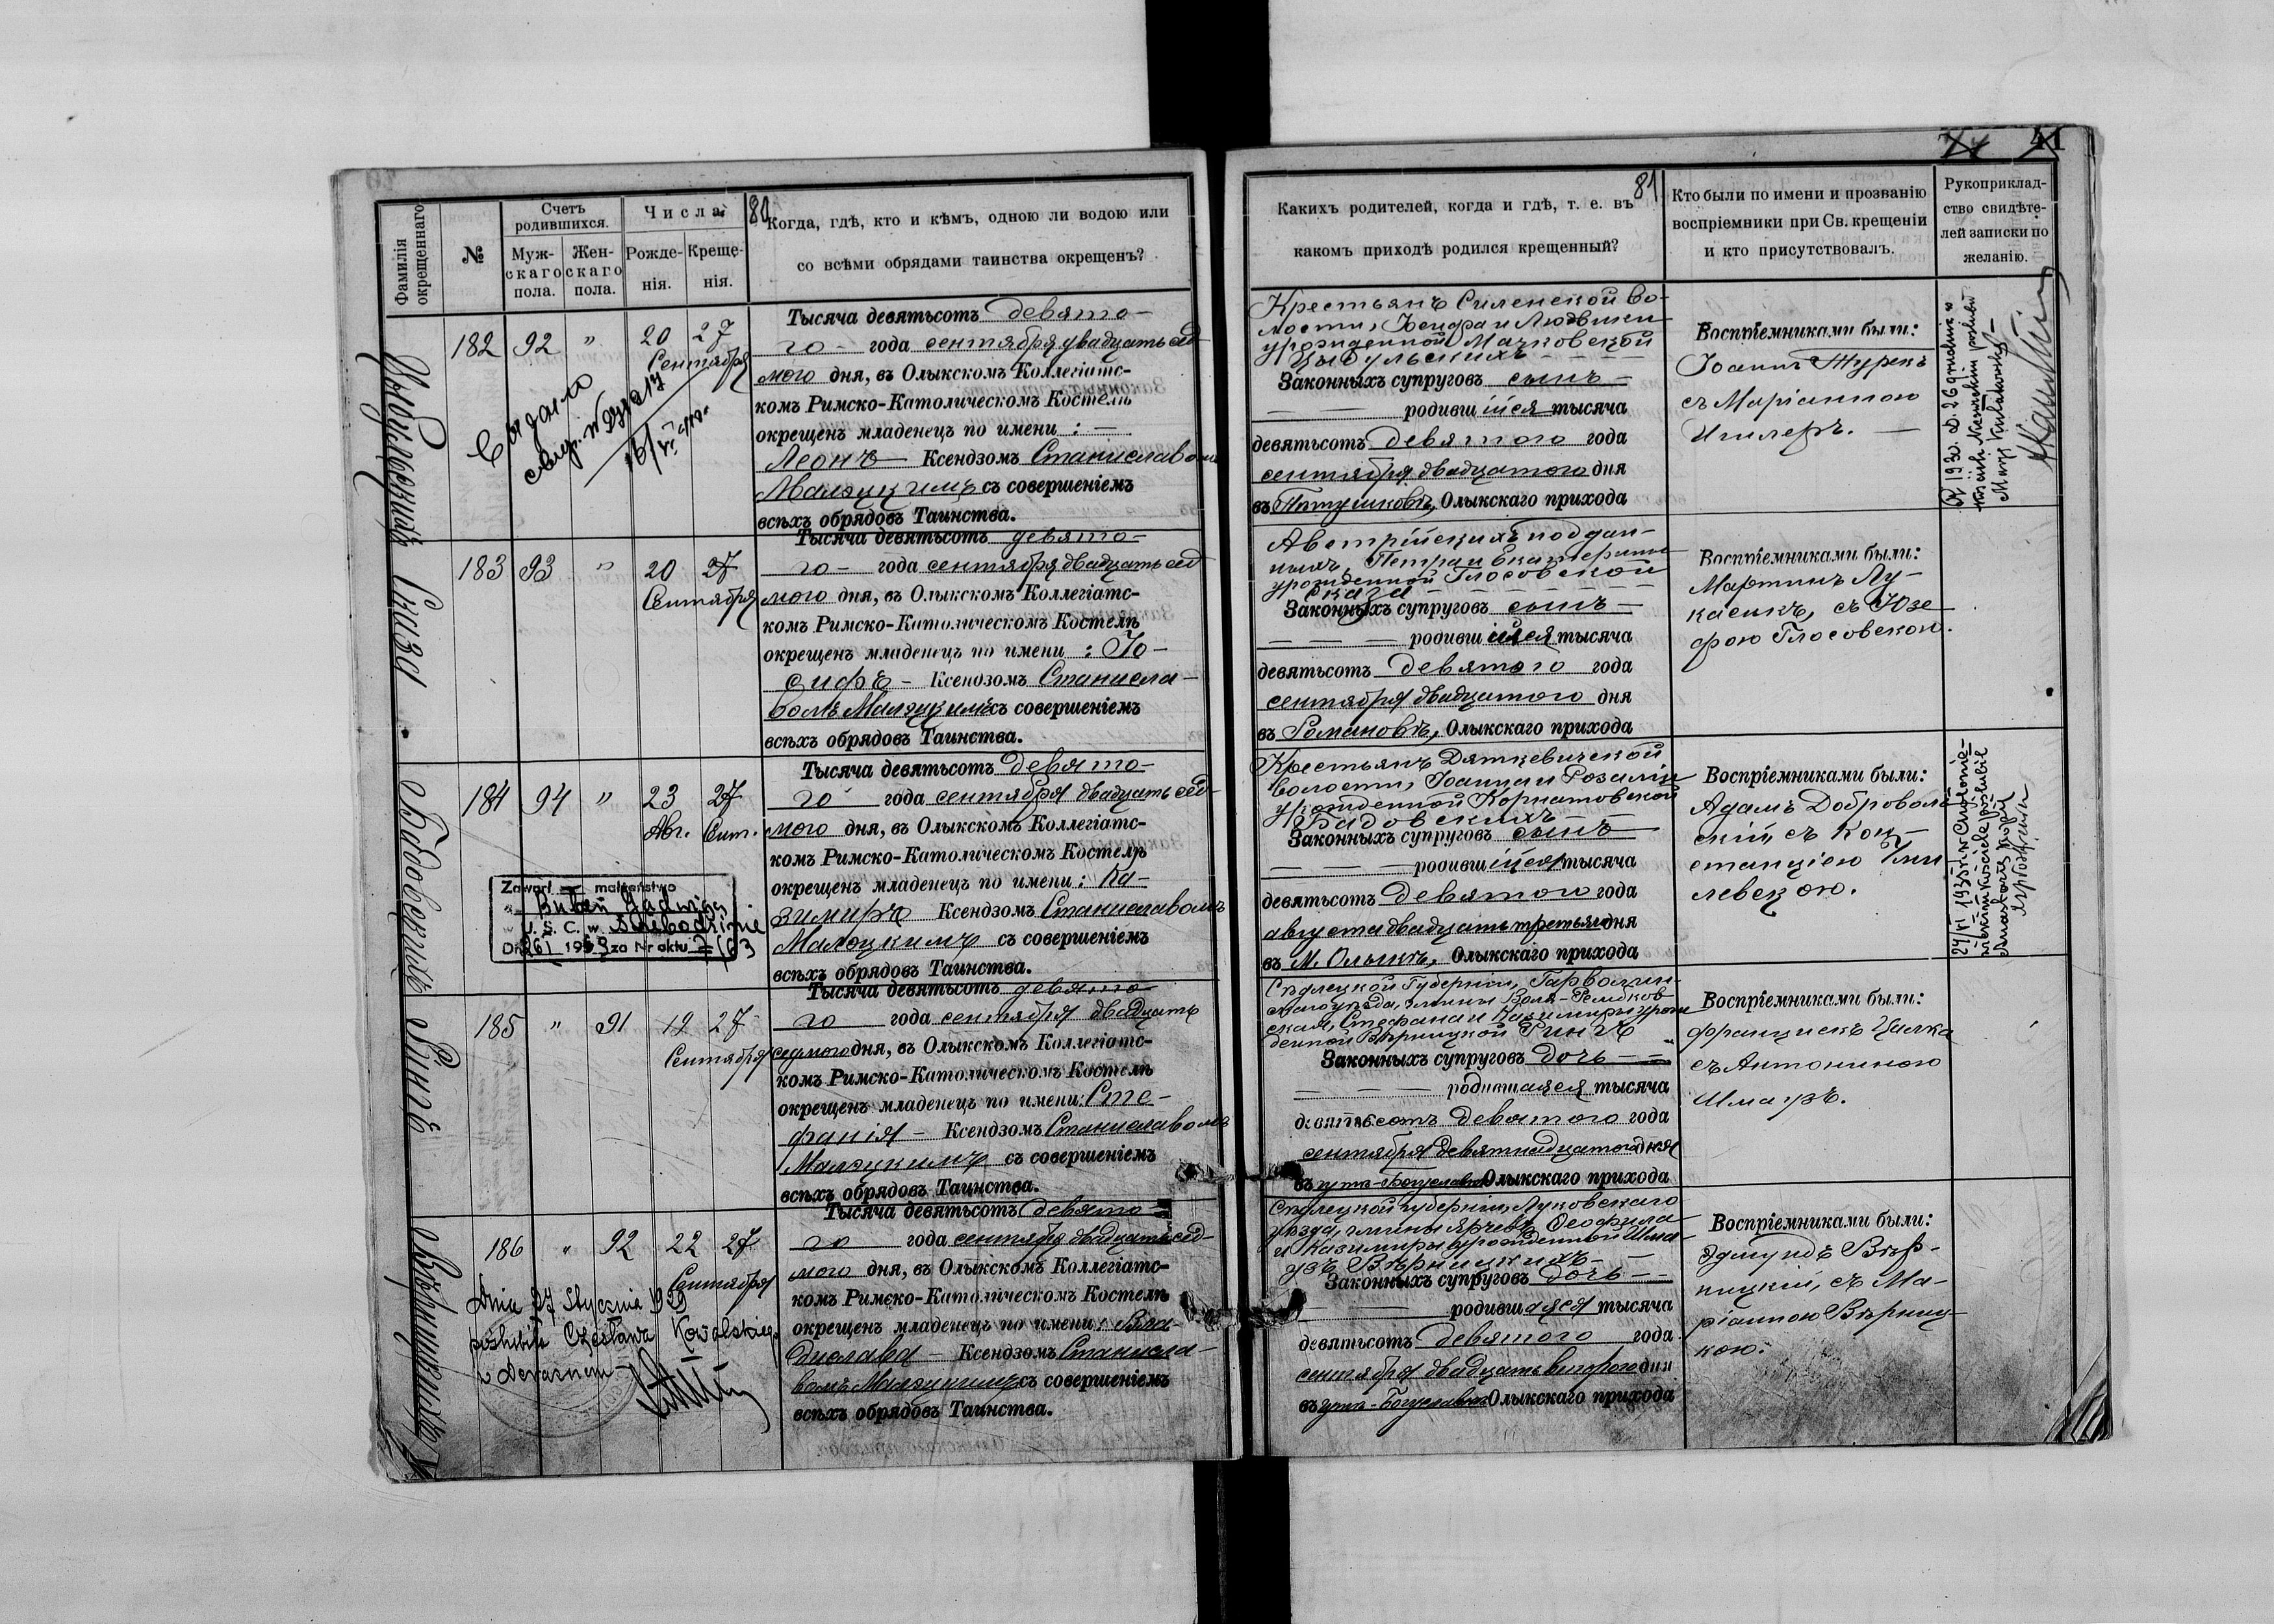 80
Фамилія
окрещеннаго
№
Счетъ
родившихся.
Муж-
скаго
пола.
Жен-
скаго
пола.
Числа
Рожде-
нія.
Креще-
нія.
Когда, гдѣ, кто и кѣмъ, одною ли водою или
со всѣми обрядами таинства окрещенъ?
182 92 " 20 27
Сентября
Тысяча девятьсотъ девято-
го года сентября двадцать сед-
мого дня, въ Олыкскомъ Коллегіатс-
комъ Римско-Католическомъ Костелѣ
окрещенъ младенецъ по имени: —
Леонъ Ксендзомъ Станиславомъ
Малэцкимъ съ совершеніемъ
всѣхъ обрядовъ Таинства.
Сказа
183 93 " 20 27
Сентября
Тысяча девятьсотъ девято-
го года сентября двадцать сед
мого дня, въ Олыкскомъ Коллегіатс-
комъ Римско-Католическомъ Костелѣ
окрещенъ младенецъ по имени: Іо-
сифъ Ксендзомъ Станисла-
вомъ Малэцкимъ съ совершеніемъ
всѣхъ обрядовъ Таинства.
Бадовскихъ
184 94 " 23 27
Авг. Сент.
Zawarł małżeństwo
U. S. C. w
za Nr aktu
Тысяча девятьсотъ девято-
го года сентября двадцать сед-
мого дня, въ Олыкскомъ Коллегіатс-
комъ Римско-Католическомъ Костелѣ
окрещенъ младенецъ по имени: Ка-
зимиръ Ксендзомъ Станиславомъ
Малэцкимъ съ совершеніемъ
всѣхъ обрядовъ Таинства.
185 " 91 19 27
Сентября
Тысяча девятьсотъ девято-
го года сентября двадцать
седмого дня, въ Олыкскомъ Коллегіатс-
комъ Римско-Католическомъ Костелѣ
окрещенъ младенецъ по имени: Сте-
фанія Ксендзомъ Станиславомъ
Малэцкимъ съ совершеніемъ
всѣхъ обрядовъ Таинства.
186 " 92 22 27
Сентября
Dnia 27 Stycznia 1929
poślubiła Czesława Kowalskiego
w Derażnem
Тысяча девятьсотъ девято-
го года сентября двадцать сед-
мого дня, въ Олыкскомъ Коллегіатс-
комъ Римско-Католическомъ Костелѣ
окрещенъ младенецъ по имени: Вла-
дислава Ксендзомъ Станисла-
вомъ Малэцкимъ съ совершеніемъ
всѣхъ обрядовъ Таинства.
81
41
Какихъ родителей, когда и гдѣ, т. е. въ
какомъ приходѣ родился крещенный?
Кто были по имени и прозванію
воспріемники при Св. крещеніи
и кто присутствовалъ.
Рукоприклад-
ство свидѣте-
лей записки по
желанію.
Крестьянъ Силенской во-
лости, Іосифа и Людвики
урожденной Мачковской
Цыбульскихъ
Законныхъ супруговъ сынъ
родившійся тысяча
девятьсотъ девятого года
сентября двадцатого дня
въ Олыкскаго прихода
Воспріемниками были:
Іоаннъ Журекъ
съ Маріанною
Австрійскихъ поддан-
ныхъ, Петра и Екатерины
урожденной Глосовской
Сказа
Законныхъ супруговъ сынъ
родившійся тысяча
девятьсотъ девятого года
сентября двадцатого дня
въ Романовѣ, Олыкскаго прихода
Воспріемниками были:
Мартинъ Лу-
касикъ, съ Юзе-
фою Глосовскою.
Крестьянъ Дяткевичской
волости, Іоанна и Розаліи
урожденной Корнатовской
Бадовскихъ
Законныхъ супруговъ сынъ
родившійся тысяча
девятьсотъ девятого года
августа двадцать третьяго дня
въ М. Олыкѣ, Олыкскаго прихода
Воспріемниками были:
Адамъ Доброволь
скій, съ Кон-
станціею
левскою.
Сѣдлецкой Губерніи, Гарволин-
скаго уѣзда, гмины Воля-
Стефана и Казимиры урож
денной Вѣрницкой Рингъ
Законныхъ супруговъ дочь
родившаяся тысяча
девятьсотъ девятого года
сентября девятнадцатого дня
въ Олыкскаго прихода
Воспріемниками были:
Францискъ Цалка
съ Антониною
Шмаузъ.
Сѣдлецкой губерніи, Луковскаго
уѣзда, гмины Ярчевъ, Ѳеофила
и Казимиры урожденной Шма-
узъ Вѣрницкихъ
Законныхъ супруговъ дочь
родившаяся тысяча
девятьсотъ девятого года
сентября двадцать второго дня
въ Олыкскаго прихода
Воспріемниками были:
Эдмундъ Вѣр-
ницкій, съ Ма-
ріанною Вѣрниц-
кою.